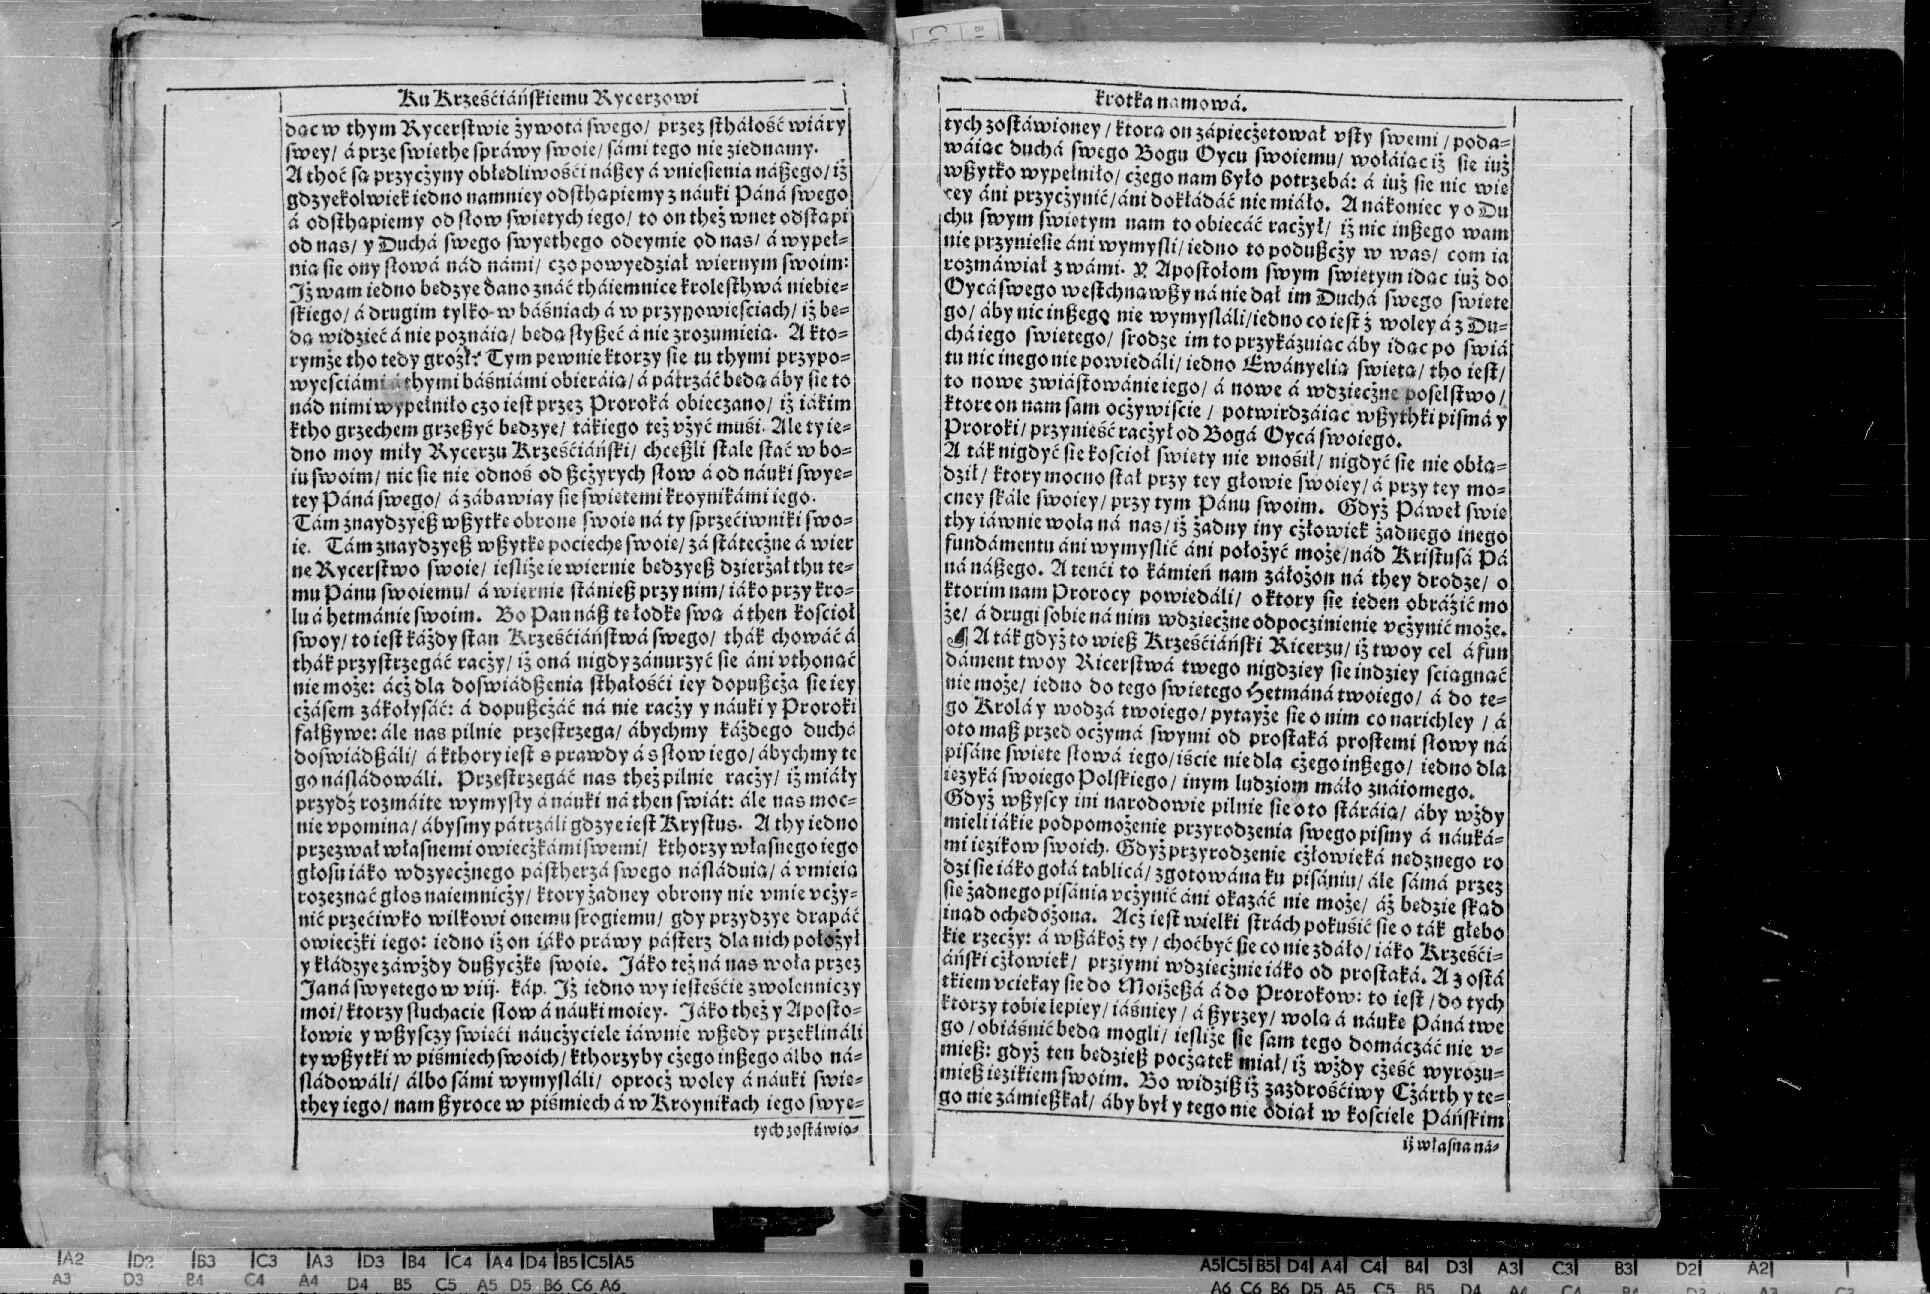 Ku Krześćiáńskiemu Rycerzowi
dąc w thym Rycerstwie żywotá swego/ przez sthałość wiáry
swey/ á prze swiethe spráwy swoie/ sámi tego nie ziednamy.
A thoć są przyczyny obłedliwośći nászey á vniesienia nászego/ iż
gdzyekolwiek iedno namniey odsthąpiemy z náuki Páná swego
á odsthąpiemy od słow swietych iego/ to on theż wnet odstąpi
od nas/ y Duchá swego swyethego odeymie od nas/ á wypeł-
nią sie ony słowá nád námi/ czo powyedział wiernym swoim:
Iż wam iedno bedzye dano znáć tháiemnice krolesthwá niebie-
skiego/ á drugim tylko w báśniach á w przypowieściach/ iż be-
dą widzieć á nie poznáią/ bedą słyszeć á nie zrozumieią. A kto-
rymże tho tedy groził? Tym pewnie ktorzy sie tu thymi przypo-
wyeściámi á thymi báśniámi obieráią/ á pátrzáć bedą áby sie to
nád nimi wypełniło czo iest przez Proroká obieczano/ iż iákim
ktho grzechem grzeszyć bedzye/ tákiego też vżyć muśi. Ale ty ie-
dno moy miły Rycerzu Krześćiáński/ chceszli stale stać w bo-
iu swoim/ nic sie nie odnoś od szczyrych słow á od náuki swye-
tey Páná swego/ á zábawiay sie swietemi kroynikámi iego.
Tám znaydzyesz wszytkę obronę swoię ná ty sprzećiwniki swo-
ie. Tám znaydzyesz wszytkę pociechę swoię/ zá státeczne á wier
ne Rycerstwo swoie/ iesliże ie wiernie bedzyesz dzierżał thu te-
mu Pánu swoiemu/ á wiernie stániesz przy nim/ iáko przy kro-
lu á hetmánie swoim. Bo Pan nász te łodkę swą á then kościoł
swoy/ to iest káżdy stan Krześćiáństwá swego/ thák chowáć á
thák przystrzegáć raczy/ iż oná nigdy zánurzyć sie áni vthonąć
nie może: ácż dla doświádszenia sthałośći iey dopuszcża sie iey
cżásem zákołysáć: á dopuszcżáć ná nie raczy y náuki y Proroki
fałszywe: ále nas pilnie przestrzega/ ábychmy káżdego duchá
doświádszáli/ á kthory iest s prawdy á s słow iego/ ábychmy te
go násládowáli. Przestrzegáć nas theż pilnie raczy/ iż miáły
przydź rozmáite wymysły á náuki ná then swiát: ále nas moc-
nie vpomina/ ábysmy pátrzáli gdzye iest Krystus. A thy iedno
przezwał własnemi owieczkámi swemi/ kthorzy własnego iego
głosu iáko wdzyecżnego pástherzá swego násláduią/ á vmieią
rozeznáć głos naiemnicży/ ktory żadney obrony nie vmie vczy-
nić przećiwko wilkowi onemu srogiemu/ gdy przydzye drapáć
owieczki iego: iedno iż on iáko práwy pásterz dla nich położył
y kłádzye záwżdy duszyczkę swoię. Iáko też ná nas woła przez
Janá swyetego w viij. káp. Iż iedno wy iesteście zwolenniczy
moi/ ktorzy słuchacie słow á náuki moiey. Iáko theż y Aposto-
łowie y wszysczy swieći náucżyciele iáwnie wszędy przeklináli
ty wszytki w piśmiech swoich/ kthorzyby cżego inszego álbo ná-
sládowáli/ álbo sámi wymysláli/ oprocż woley á náuki swie-
they iego/ nam szyroce w piśmiech á w Kroynikach iego swye-
tych zostáwio-
krotka namowá.
tych zostáwioney/ ktorą on zápiecżetował vsty swemi/ poda-
wáiąc duchá swego Bogu Oycu swoiemu/ wołáiąc iż sie iuż
wszytko wypełniło/ cżego nam było potrzebá: á iuż sie nic wie
cey áni przycżynić/ áni dokłádáć nie miáło. A nákoniec y o Du
chu swym swietym nam to obiecáć racżył/ iż nic inszego wam
nie przyniesie áni wymysli/ iedno to poduszcży w was/ com ia
rozmáwiał z wámi. Y Apostołom swym swietym idąc iuż do
Oycá swego westchnąwszy ná nie dał im Duchá swego swiete
go/ áby nic inszego nie wymysláli/ iedno co iest z woley á z Du-
chá iego swietego/ srodze im to przykázuiąc áby idąc po swiá
tu nic inego nie powiedáli/ iedno Ewányelią swietą/ tho iest/
to nowe zwiástowánie iego/ á nowe á wdziecżne poselstwo/
ktore on nam sam ocżywiście/ potwirdzáiąc wszythki pismá y
Proroki/ przynieść racżył od Bogá Oycá swoiego.
A ták nigdyć sie kościoł swiety nie vnośił/ nigdyć sie nie obłą-
dził/ ktory mocno stał przy tey głowie swoiey/ á przy tey mo-
cney skále swoiey/ przy tym Pánu swoim. Gdyż Páweł swie
thy iáwnie woła ná nas/ iż żadny iny człowiek żadnego inego
fundámentu áni wymyslić áni położyć może/ nád Kristusá Pá
ná nászego. A tenći to kámień nam záłożon ná they drodze/ o
ktorim nam Prorocy powiedáli/ o ktory sie ieden obráźić mo
że/ á drugi sobie ná nim wdziecżne odpoczinienie vcżynić może.
¶ A ták gdyż to wiesz Krześćiáński Ricerzu/ iż twoy cel á fun
dáment twoy Ricerstwá twego nigdziey sie indziey sciągnąć
nie może/ iedno do tego swietego Hetmáná twoiego/ á do te-
go Krolá y wodzá twoiego/ pytayże sie o nim co narichley/ á
oto masz przed ocżymá swymi od prostaká prostemi słowy ná
pisáne swiete słowá iego/ iście nie dla cżego inszego/ iedno dla
iezyká swoiego Polskiego/ inym ludziom máło znáiomego.
Gdyż wszyscy ini narodowie pilnie sie o to stáráią/ áby wżdy
mieli iákie podpomożenie przyrodzenia swego pismy á náuká-
mi iezikow swoich. Gdyż przyrodzenie cżłowieká nedznego ro
dzi sie iáko gołá tablicá/ zgotowána ku pisániu/ ále sámá przez
sie żadnego pisánia vcżynić áni okazáć nie może/ áż bedzie skąd
inąd ochedożona. Acż iest wielki strách pokuśić sie o ták głebo
kie rzecży: á wszákoż ty/ choćbyć sie co nie zdáło/ iáko Krześći-
áński cżłowiek/ prziymi wdziecżnie iáko od prostaká. A z ostá
tkiem vciekay sie do Moiżeszá á do Prorokow: to iest/ do tych
ktorzy tobie lepiey/ iáśniey/ á szyrzey/ wolą á náukę Páná twe
go/ obiáśnić bedą mogli/ iesliże sie sam tego domácżáć nie v-
miesz: gdyż ten bedziesz pocżątek miał/ iż wżdy cżęść wyrozu-
miesz iezikiem swoim. Bo widzisz iż zazdrośćiwy Cżárth y te-
go nie zámieszkał/ áby był y tego nie odiął w kosciele Páńskim
iż własna ná-
A2 D2 B3 C3 A3 D3 B4 C4 A4 D4 B5 C5 A5
A3 D3 B4 C4 A4 D4 B5 C5 A5 D5 B6 C6 A6
A5 C5 B5 D4 A4 C4 B4 D3 A3 C3 B3 D2 A2
A6 C6 B6 D5 A5 C5 B5 D4 A4 C4 B4 D3 A3 C3